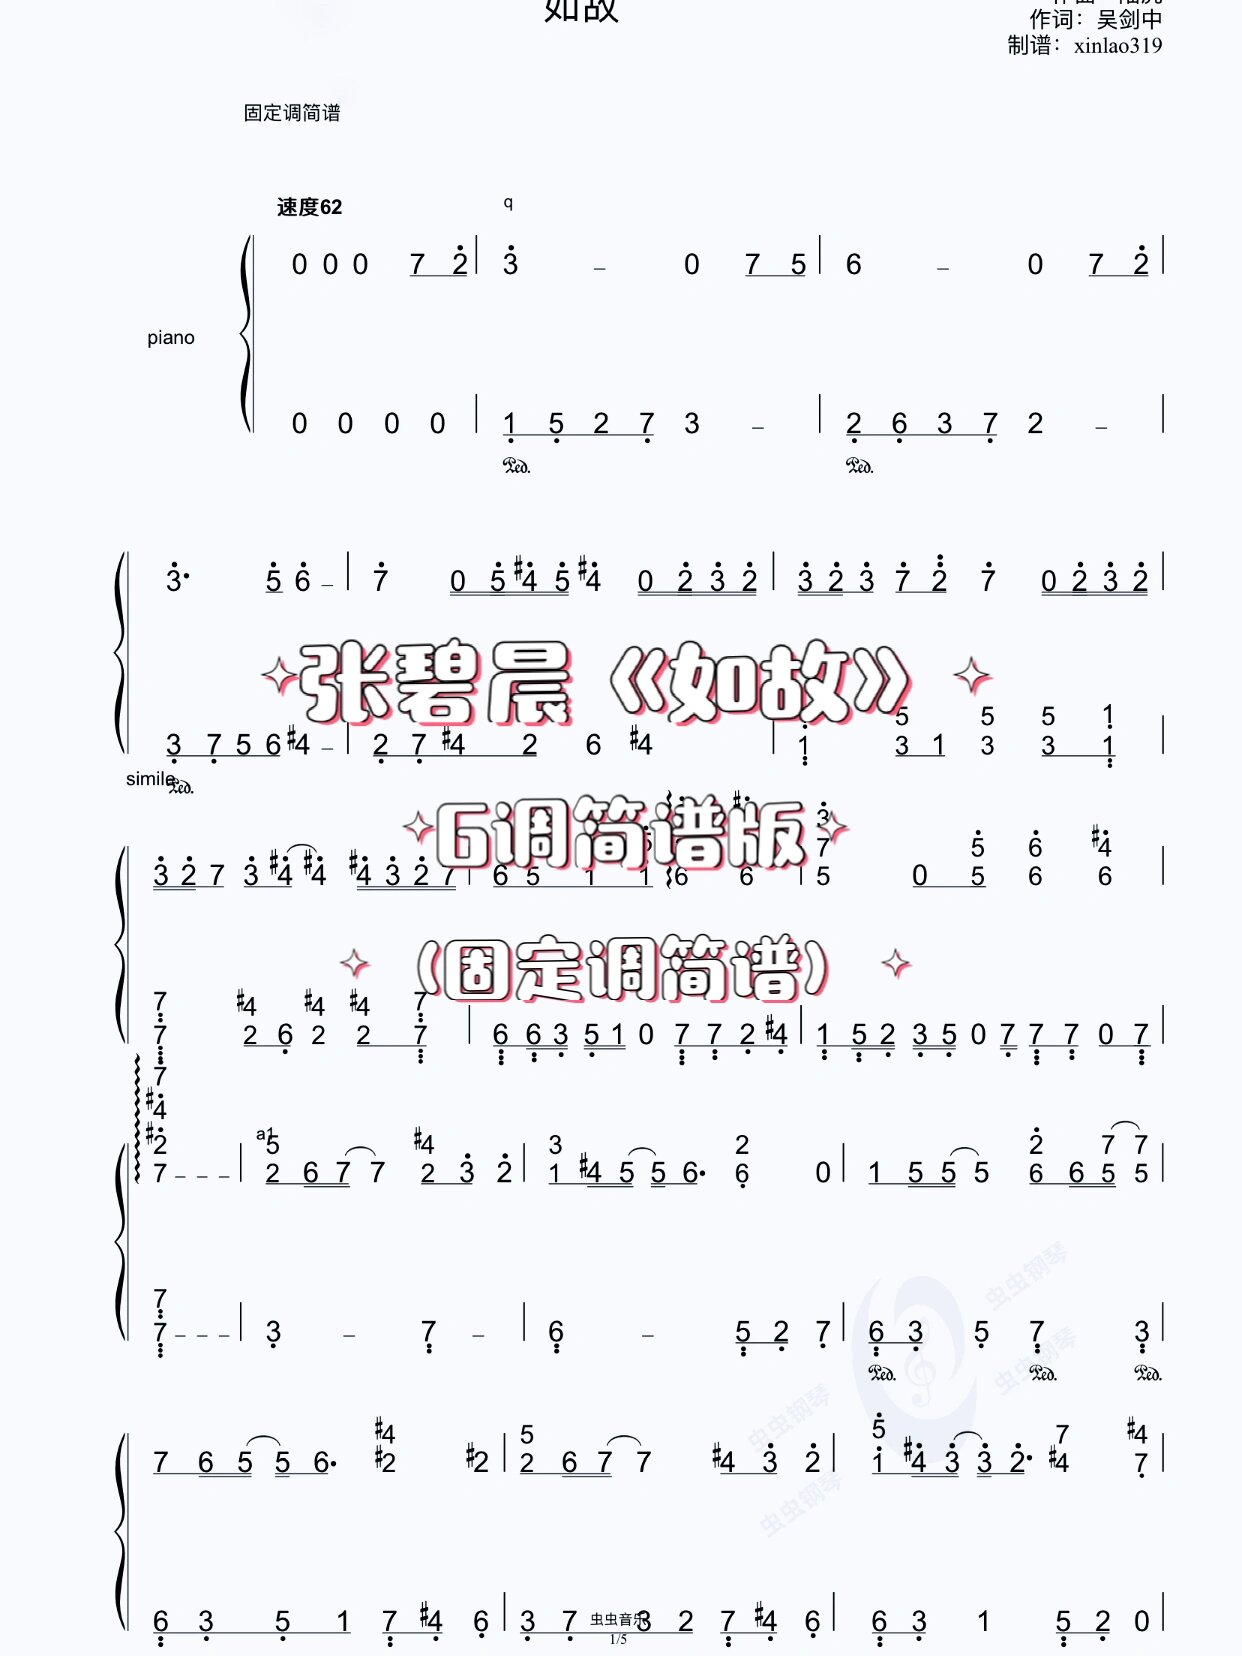 如故
作词：吴剑中
制谱：xinlao319
固定调简谱
速度62
q
0 0 0 7 2 3 – 0 7 5 6 – 0 7 2
piano
0 0 0 0 1 5 2 7 3 – 2 6 3 7 2 –
Ped. Ped.
3· 5 6 – 7 0 5 #4 5 #4 0 2 3 2 3 2 3 7 2 7 0 2 3 2
张碧晨《如故》
5 5 5 1
3 7 5 6 #4 – 2 7 #4 2 6 #4 1 3 1 3 3 1
simile
Ped.
G调简谱版
3
7 5 6 #4
3 2 7 3 #4 #4 #4 3 2 7 6 5 1 1 6 6 5 0 5 6 6
（固定调简谱）
7 #4 #4 #4 7
7 2 6 2 2 7 6 6 3 5 1 0 7 7 2 #4 1 5 2 3 5 0 7 7 7 0 7
7
#4
a1
#2 5 #4 3 2 2 7 7
7 – – – 2 6 7 7 2 3 2 1 #4 5 5 6· 6 0 1 5 5 5 6 6 5 5
7
7 – – – 3 – 7 – 6 – 5 2 7 6 3 5 7 3
Ped. Ped. Ped.
虫虫钢琴
虫虫钢琴
虫虫钢琴
虫虫钢琴
#4 5 5 7 #4
7 6 5 5 6· #2 #2 2 6 7 7 #4 3 2 1 #4 3 3 2· #4 7
6 3 5 1 7 #4 6 3 7 3 2 7 #4 6 6 3 1 5 2 0
虫虫音乐
1/5